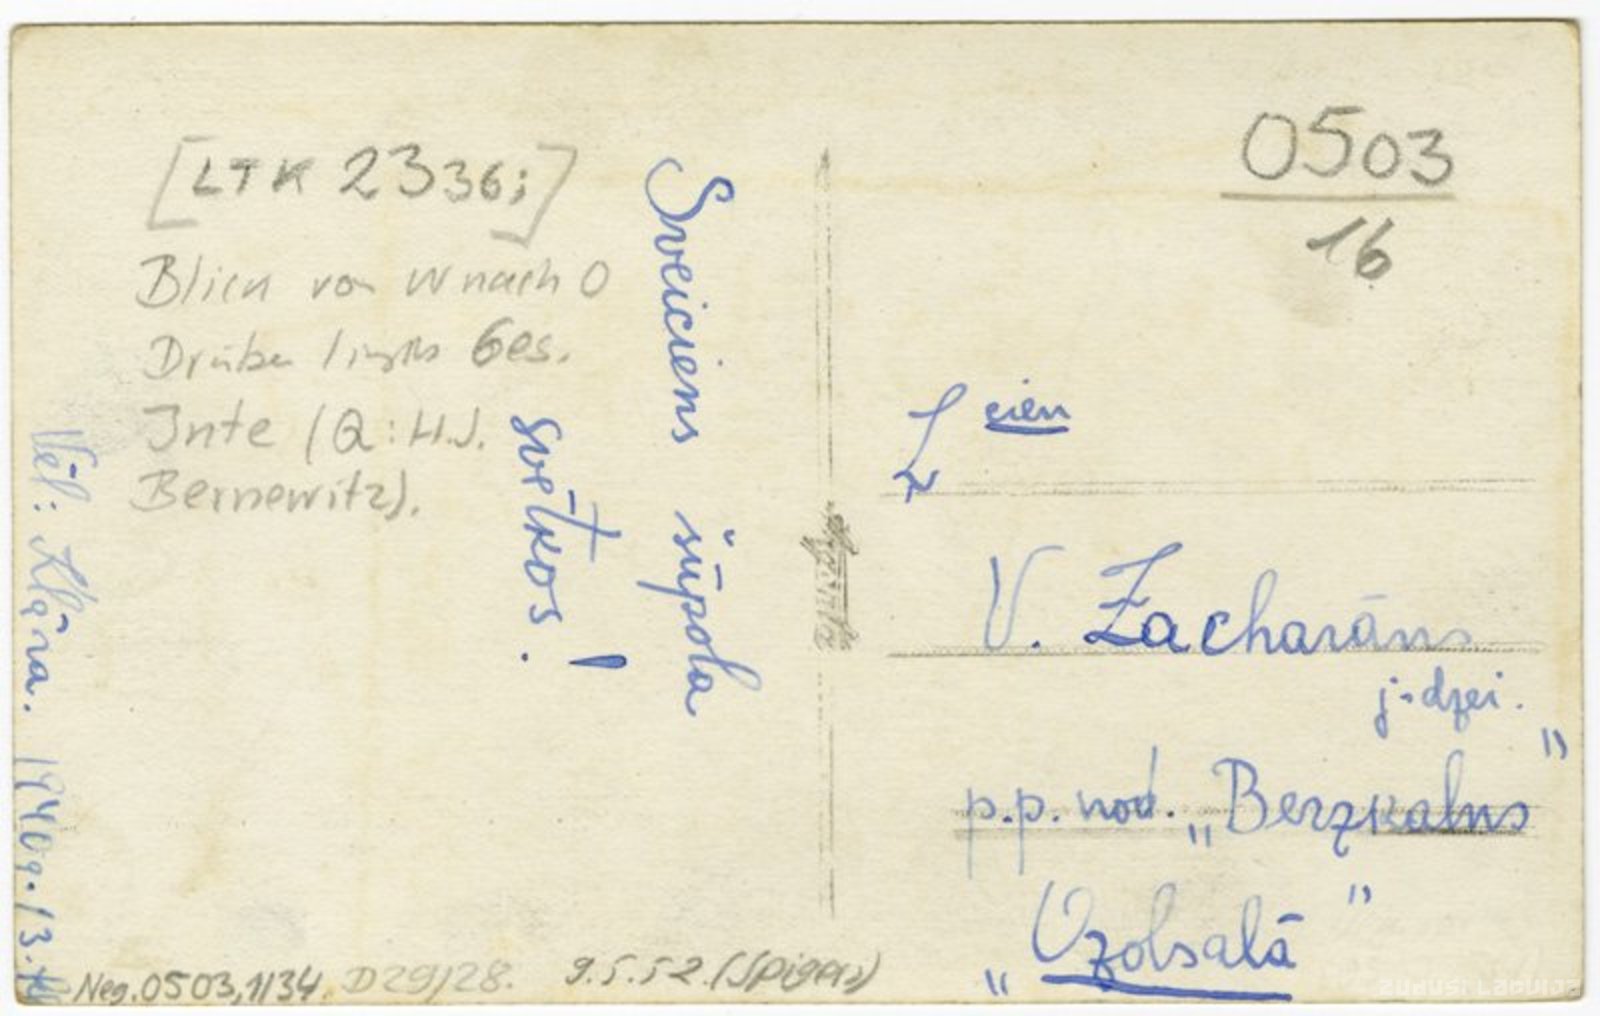 [LTK 2336;]
Blick von W nach O
Drüben links Ges.
Inte (Q: H.J.
Bernewitz).
Sveiciens šūpoļa
svētkos!
Vēl: Klāra. 1940g. 13.
0503
16
cien
V. Zacharāns
j-dzei.
p.p. nod. „Berzkalns”
„Ozolsalā”
Neg. 0503, 1/34. D29/28. 9.5.52. (Spigers)
zudusi Latvija